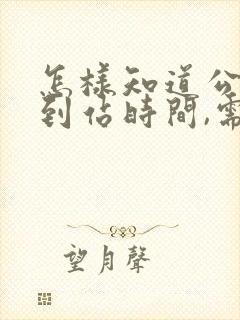 怎樣知道公
到佔時間,需
望月聲